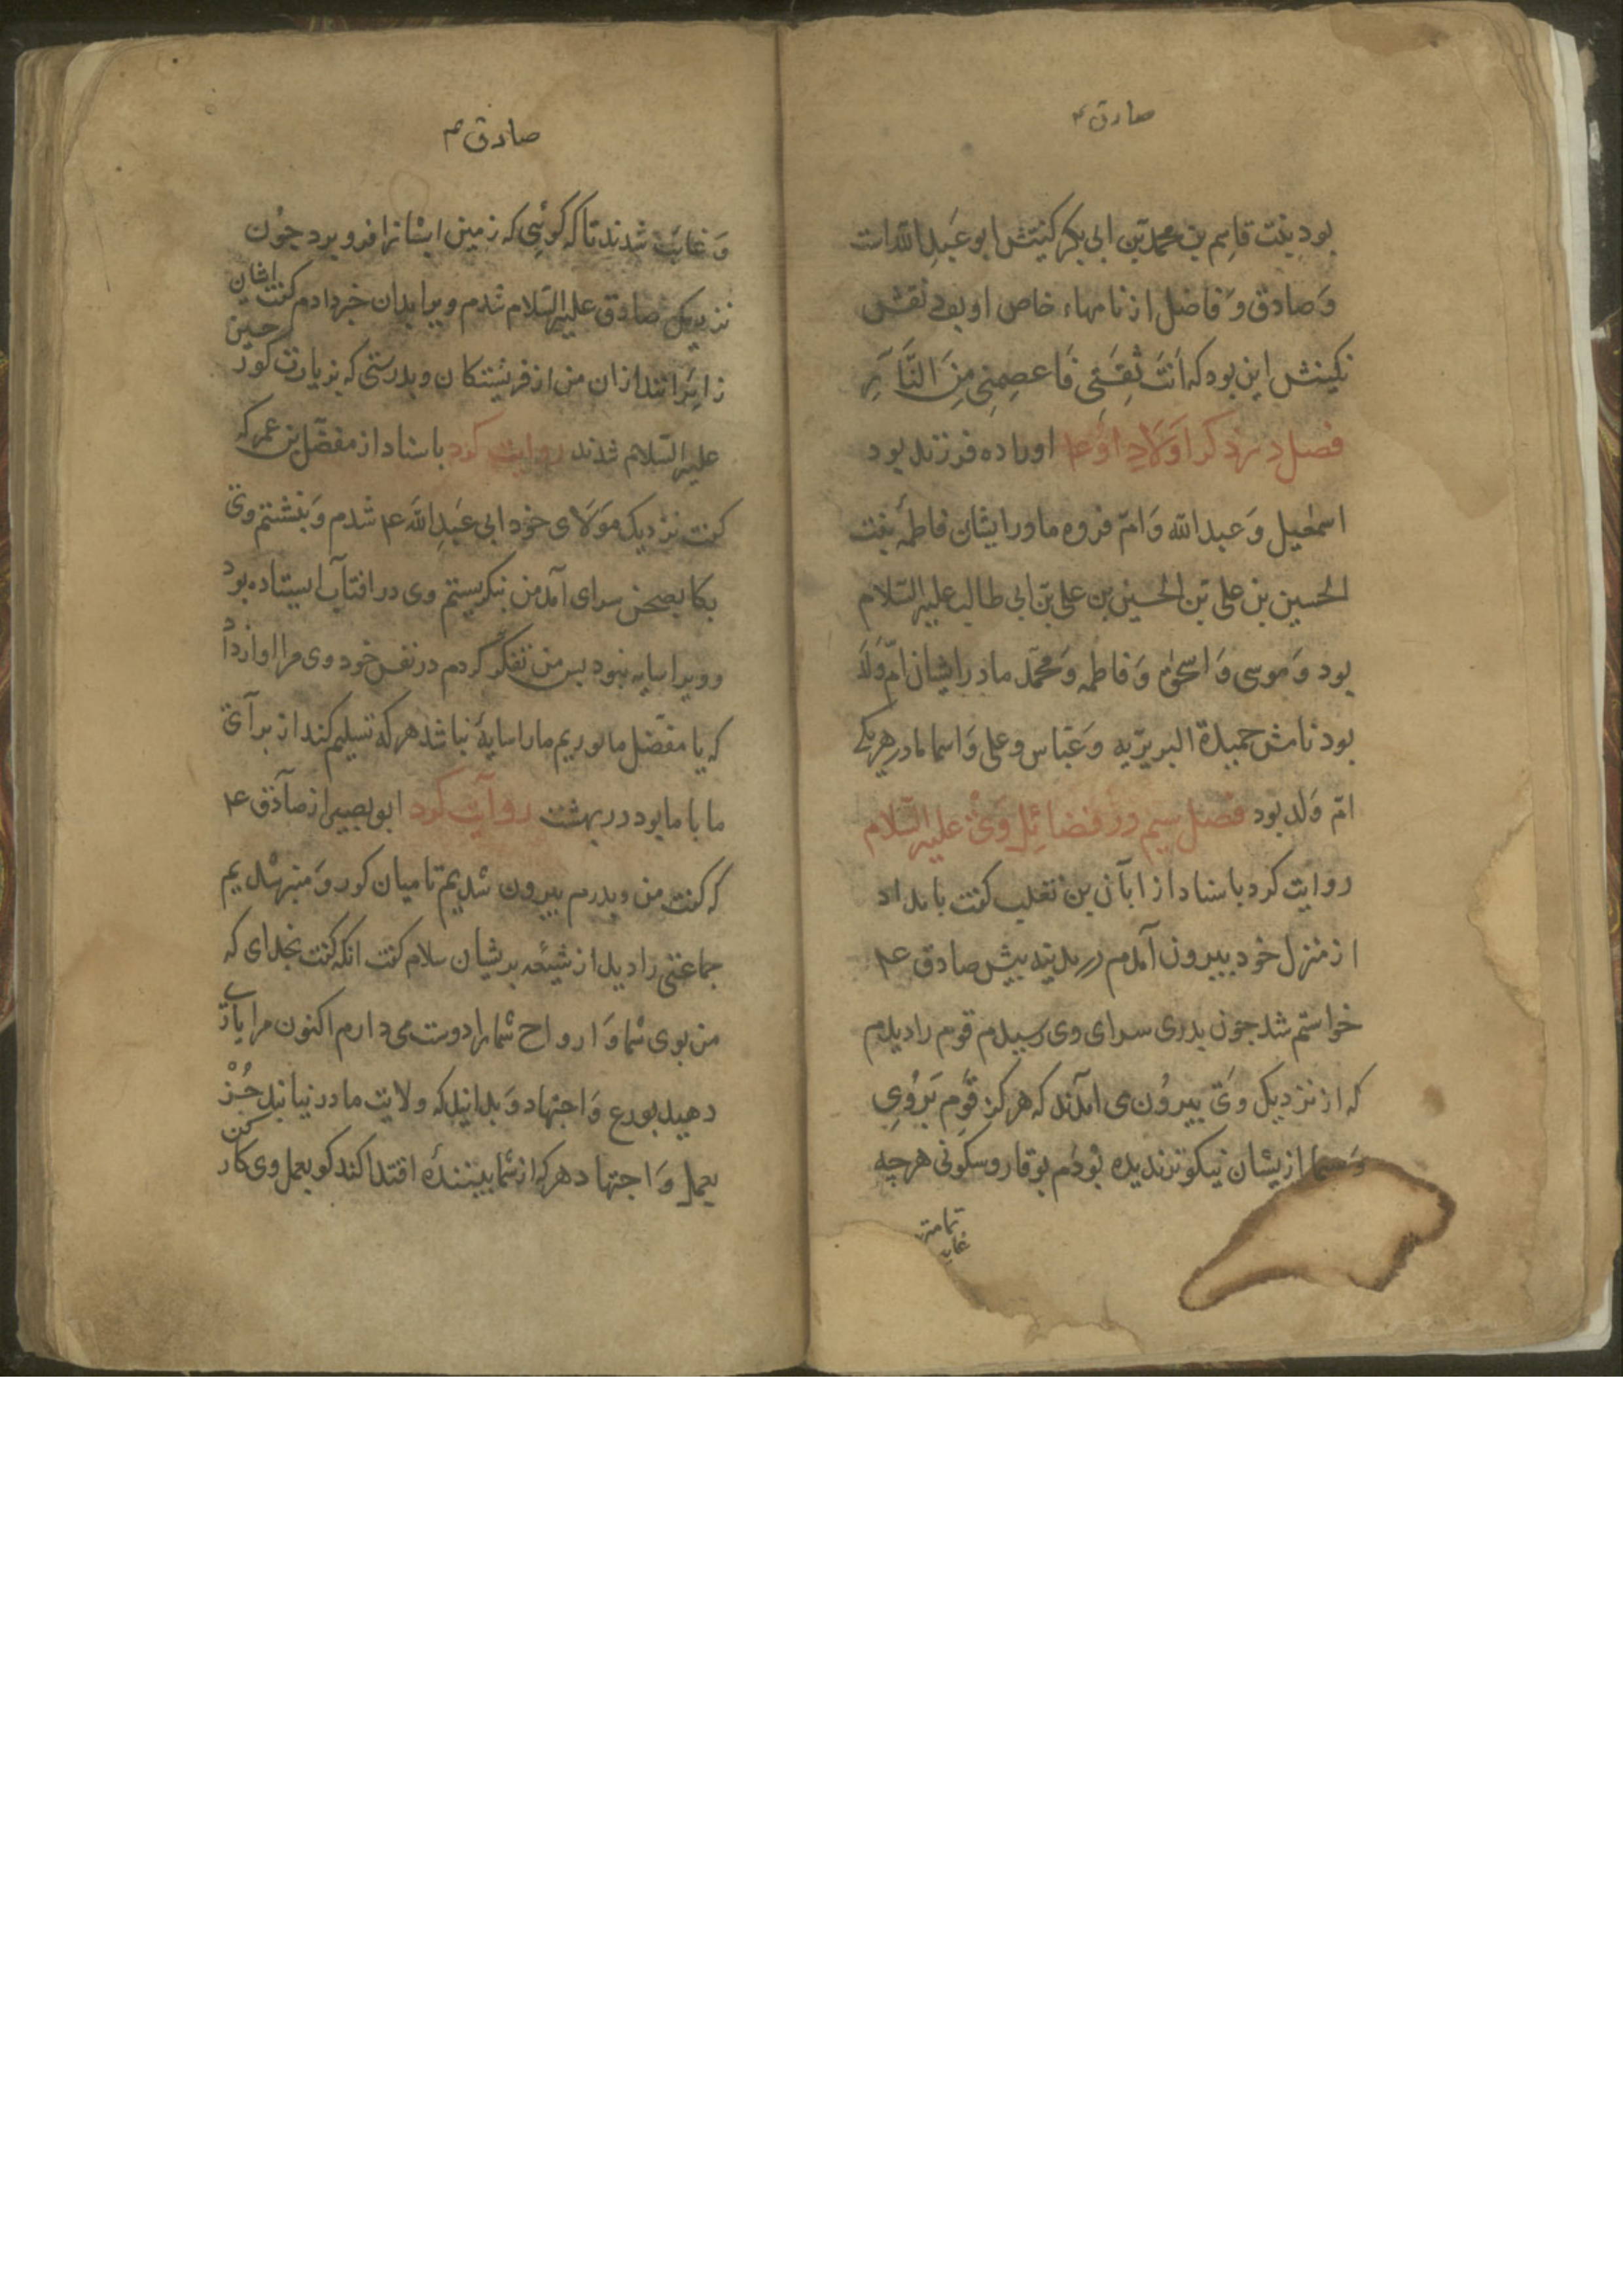 صادق ع
بود بنت قاسم بن محمد بن ابی بکر کنیتش ابو عبد الله است
وَ صادق وَ فاضل از نامهاء خاص او بود نقش
نکینش این بود که اَنتَ ثِقَتی فَاعصِمنِی مِنَ النَّارِ
فصل در ذکر اَوْلادِ اوْ ع اورا ده فرزند بود
اسمعیل وَ عبد الله وَ امّ فروه مادر ایشان فاطمه بنت
الحسین بن علی بن الحسین بن علی بن ابی طالب علیه السّلام
بود وَ موسی وَ اسحق وَ فاطمه وَ محمّد مادر ایشان امّ وَلَد
بود نامش حمیدة البربریه وَ عَبّاس و علی وَ اسما مادر هر یکی
امّ وَلد بود فصل سیم در فضائِل وَیْ علیه السّلام
روایت کرد باسناد از ابان بن تغلب کفت بامداد
از منزل خود بیرون آمدم در مدینه پیش صادق ع
خواستم شد جون بدری سرای وی رسیدم قوم را دیدم
که از نزدیک وَیْ بیرُون می آمدند که هرکز قَومِ بَرُویِ
وَ سیما ازیشان نیکوتر ندیده بُودَم بوقار وسکونی هرجه
تمامتر
غایب
صادق ع
وَ غایَب شدند تا که کوئی که زمین ایشانرا فرو برد جُون
نزدیک صادق علیه السّلام شدم ویرا بدان خبر دادم کفت ایشان
زایِرانند ازان من از فریشتکان و بدرستی که بزیارت کور حسین
علیه السّلام شدند روایت کرد باسناد از مفضّل بن عمر که
کفت نزدیک مَولای خود ابی عَبدِ الله ع شدم وَ بنشستم وی
بکا بصحن سرای آمد من بنکریستم وی در افتاب ایستاده بود
و ویرا سایه نبود بس من تفکّر کردم در نفس خود وی مرا اواز داد
که یا مفضّل ما نوریم مارا سایهٔ نباشد هرکه تسلیم کند از برای
ما با ما بود در بهشت روایت کرد ابو بصیر از صادق ع
که کفت من و پدرم بیرون شدیم تا میان کور وَ منبر شدیم
جماعتی را دید از شیعَه بریشان سلام کفت انکه کفت بخدای که
من بوی شما وَ ارواح شمارا دوست می دارم اکنون مرا یاری
دهید بورع وَ اجتهاد وَ بدانید که ولایت ما در نیابند جُز
بعمل وَ اجتهاد هرکه از شما ببنندهٔ اقتدا کند کو بعمل وی کار کن